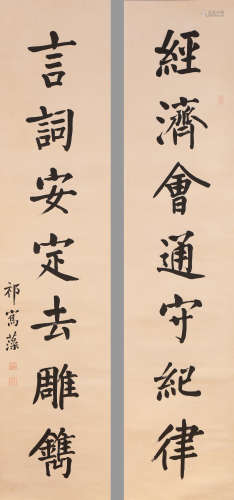 經濟會通守紀律
言詞安定去雕鐫
祁寯藻